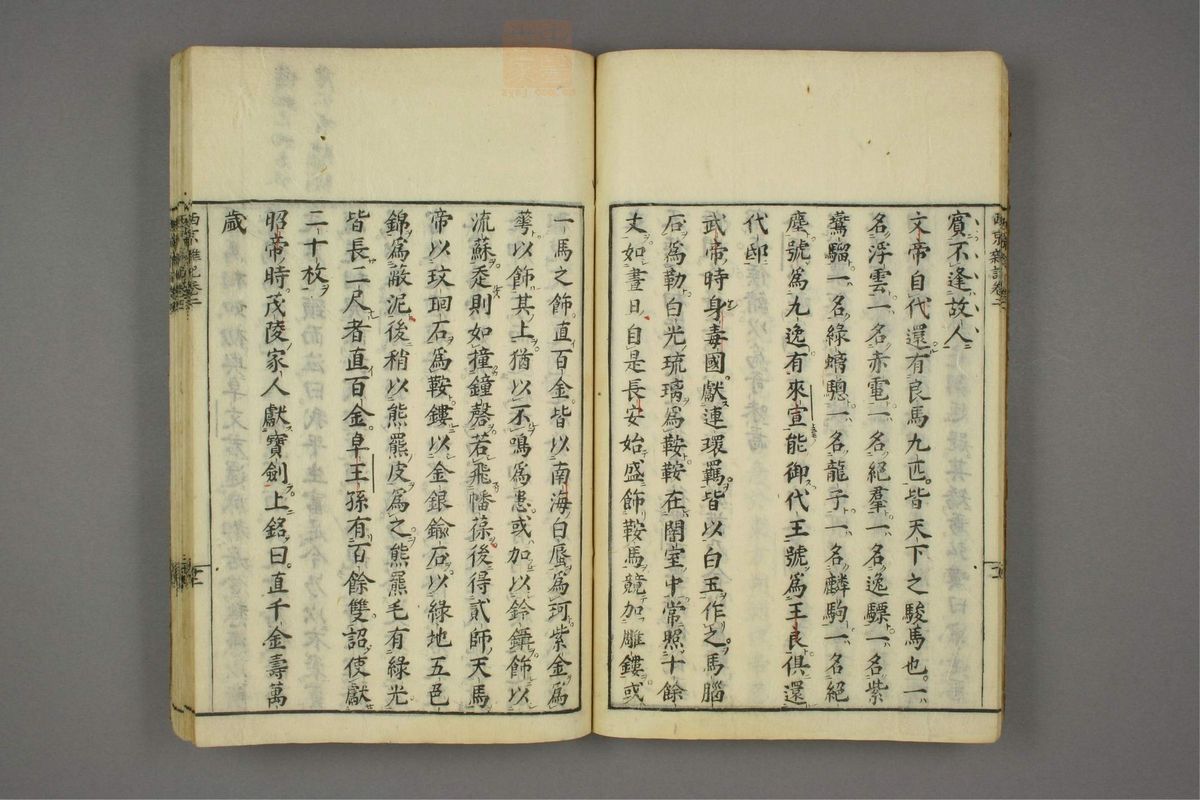 賓不逢故人
文帝自代還有良馬九匹皆天下之駿馬也一
名浮雲一名赤電一名絕羣一名逸驃一名紫
鷰騮一名綠螭驄一名龍子一名麟駒一名絕
塵號爲九逸有來宣能御代王號爲王良俱還
代邸
武帝時身毒國獻連環羈皆以白玉作之馬腦
石爲勒白光琉璃爲鞍鞍在闇室中常照十餘
丈如晝日自是長安始盛飾鞍馬競加雕鏤或
一馬之飾直百金皆以南海白蜃爲珂紫金爲
萼以飾其上猶以不鳴爲患或加以鈴鑷飾以
流蘇走則如撞鐘磬若飛幡葆後得貳師天馬
帝以玟瑰石爲鞍鏤以金銀鍮石以綠地五色
錦爲蔽泥後稍以熊羆皮爲之熊羆毛有綠光
皆長二尺者直百金卓王孫有百餘雙詔使獻
二十枚
昭帝時茂陵家人獻寶劍上銘曰直千金壽萬
歲
西京雜記卷二